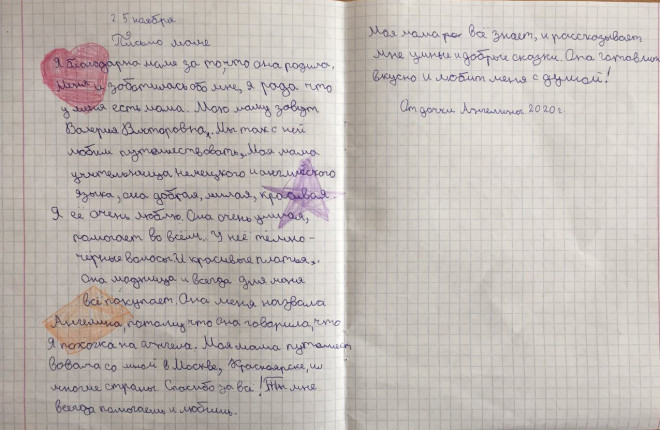 25 ноября
Письмо маме
Я благодарна маме за то,что она родила,
меня и заботилась обо мне, я рада что
у меня есть мама. Мою маму зовут
Валерия Викторовна. Мы так с ней
любим путешествовать. Моя мама
учительница немецкого и английского
языка, она добрая, милая, красивая.
Я её очень люблю. Она очень умная,
помогает во всём. У неё тёмно-
чёрные волосы. И красивые платья.
Она модница и всегда для меня
всё покупает. Она меня назвала
Ангелина, потому что она говорила, что
Я похожа на ангела. Моя мама путешест
вовала со мной в Москве, Красноярске, и
многие страны. Спасибо за всё! Ты мне
всегда помогаешь и любишь.
Моя мама всё знает, и рассказывает
мне умные и добрые сказки. Она готовит
вкусно и любит меня с душой!
От дочки Ангелины 2020г.